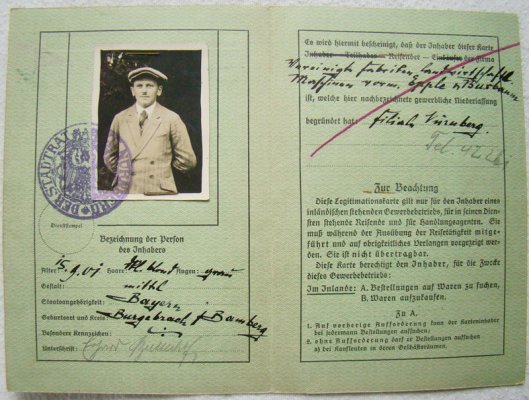 DER STADTRAT
Dienststempel
Bezeichnung der Person
des Inhabers
Alter: 15.9.01 Haare: blond Augen: grau
Gestalt: mittl
Staatsangehörigkeit: Bayern
Geburtsort und Kreis: Burgebrach / Bamberg
Besondere Kennzeichen:
Unterschrift:
Es wird hiermit bescheinigt, daß der Inhaber dieser Karte
Inhaber – Teilhaber – Reisender – Einkäufer der Firma
Vereinigte Fabriken landwirtschaftl
Maschinen vorm. Epple u Buxbaum
ist, welche hier nachbezeichnete gewerbliche Niederlassung
begründet hat: Filiale Nürnberg.
Tel 42
Zur Beachtung
Diese Legitimationskarte gilt nur für den Inhaber eines
inländischen stehenden Gewerbebetriebs, für in seinen Dien-
sten stehende Reisende und für Handlungsagenten. Sie
muß während der Ausübung der Reisetätigkeit mitge-
führt und auf obrigkeitliches Verlangen vorgezeigt wer-
den. Sie ist nicht übertragbar.
Diese Karte berechtigt den Inhaber, für die Zwecke
dieses Gewerbebetriebs:
Im Inlande: A. Bestellungen auf Waren zu suchen,
B. Waren aufzukaufen.
Zu A.
1. Auf vorherige Aufforderung kann der Karteninhaber
bei jedermann Bestellungen aufsuchen;
2. ohne Aufforderung darf er Bestellungen aufsuchen
a) bei Kaufleuten in deren Geschäftsräumen.